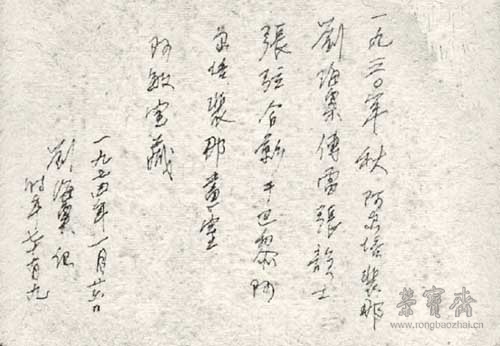 一九三〇年秋阿尔培裴那
劉海粟傅雷張韻士
張弦合影于巴黎阿
尔培裴那畫室
阿敏宝藏
一九七四年一月
劉海粟記
时年七十有九
榮寶齋
www.rongbaozhai.cn